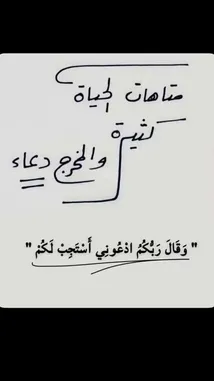 متاهات الحياة
كثيرة
والمخرج دعاء
" وَقَالَ رَبُّكُمُ ادْعُونِي أَسْتَجِبْ لَكُمْ "